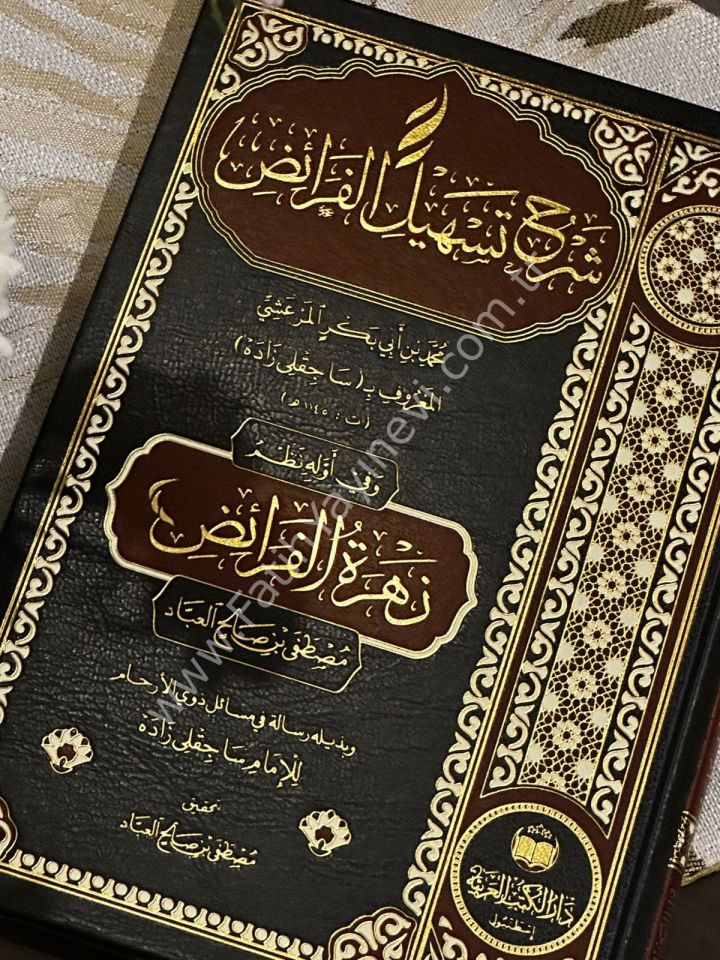 شَرْحُ تَسْهِيلِ الفَرَائِضِ
مُحَمَّد بْنِ أَبِي بَكْرٍ المَرْعَشِيِّ
المَعْرُوفِ بِـ (سَاجِقْلِي زَادَهْ)
(ت : ١١٤٥ هـ)
وَفِي أَوَّلِهِ نَظْمُ
زَهْرَةُ الفَرَائِضِ
مُصْطَفَى بْن صَالِح العبَّاد
وبذيله رسالة في مسائل ذوي الأرحام
لِلإمَامِ سَاجِقْلِي زَادَهْ
تحقيق
مُصْطَفَى بْن صَالِح العبَّاد
دَارُ الكُتُبِ العَرَبِيَّةِ
إسطنبول
www.FatihYayinevi.com.tr